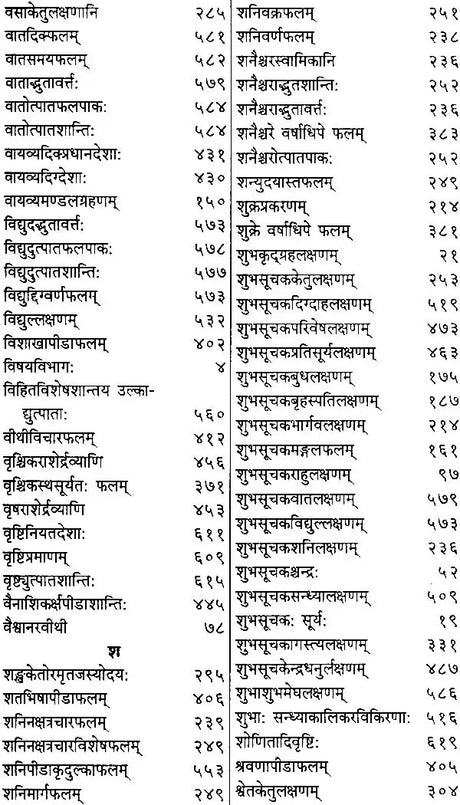 वसाकेतुलक्षणानि २८५
वातदिक्फलम् ५८१
वातसमयफलम् ५८२
वाताद्भुतावर्त्त: ५७९
वातोत्पातफलपाक: ५८४
वातोत्पातशान्ति: ५८४
वायव्यदिक्प्रधानदेशा: ४३१
वायव्यदिग्देशा: ४३०
वायव्यमण्डलग्रहणम् १५०
विद्युदद्भुतावर्त्त: ५७३
विद्युदुत्पातफलपाक: ५७८
विद्युदुत्पातशान्ति: ५७७
विद्युद्दिग्वर्णफलम् ५७३
विद्युल्लक्षणम् ५३२
विशाखापीडाफलम् ४०२
विषयविभाग: ४
विहितविशेषशान्तय उल्का-
द्युत्पाता: ५६०
वीथीविचारफलम् ४१२
वृश्चिकराशेर्द्रव्याणि ४५६
वृश्चिकस्थसूर्यत: फलम् ३७१
वृषराशेर्द्रव्याणि ४५३
वृष्टिनियतदेशा: ६११
वृष्टिप्रमाणम् ६०९
वृष्ट्युत्पातशान्ति: ६१५
वैनाशिकर्क्षपीडाशान्ति: ४४५
वैश्वानरवीथी ७८
श
शङ्खकेतोरमृतजस्योदय: २९५
शतभिषापीडाफलम् ४०६
शनिनक्षत्रचारफलम् २३९
शनिनक्षत्रचारविशेषफलम् २४९
शनिपीडाकृदुल्काफलम् ५५३
शनिमार्गफलम् २४९
शनिवक्रफलम् २५१
शनिवर्णफलम् २३८
शनैश्चरस्वामिकानि २३६
शनैश्चराद्भुतशान्ति: २५२
शनैश्चराद्भुतावर्त्त: २३६
शनैश्चरे वर्षाधिपे फलम् ३८३
शनैश्चरोत्पातपाक: २५२
शन्युदयास्तफलम् २४९
शुक्रप्रकरणम् २१४
शुक्रे वर्षाधिपे फलम् ३८१
शुभकृद्ग्रहलक्षणम् २१
शुभसूचककेतुलक्षणम् २५३
शुभसूचकदिग्दाहलक्षणम् ५१९
शुभसूचकपरिवेषलक्षणम् ४७३
शुभसूचकप्रतिसूर्यलक्षणम् ४६३
शुभसूचकबुधलक्षणम् १७५
शुभसूचकबृहस्पतिलक्षणम् १८७
शुभसूचकभार्गवलक्षणम् २१४
शुभसूचकमङ्गलफलम् १६१
शुभसूचकराहुलक्षणम् ९७
शुभसूचकवातलक्षणम् ५७९
शुभसूचकविद्युल्लक्षणम् ५७३
शुभसूचकशनिलक्षणम् २३६
शुभसूचकश्चन्द्र: ५२
शुभसूचकसन्ध्यालक्षणम् ५०९
शुभसूचक: सूर्य: १९
शुभसूचकागस्त्यलक्षणम् ३३१
शुभसूचकेन्द्रधनुर्लक्षणम् ४८७
शुभाशुभमेघलक्षणम् ५८६
शुभा: सन्ध्याकालिकरविकिरणा: ५१६
शोणितादिवृष्टि: ६१९
श्रवणापीडाफलम् ४०५
श्वेतकेतुलक्षणम् ३०४